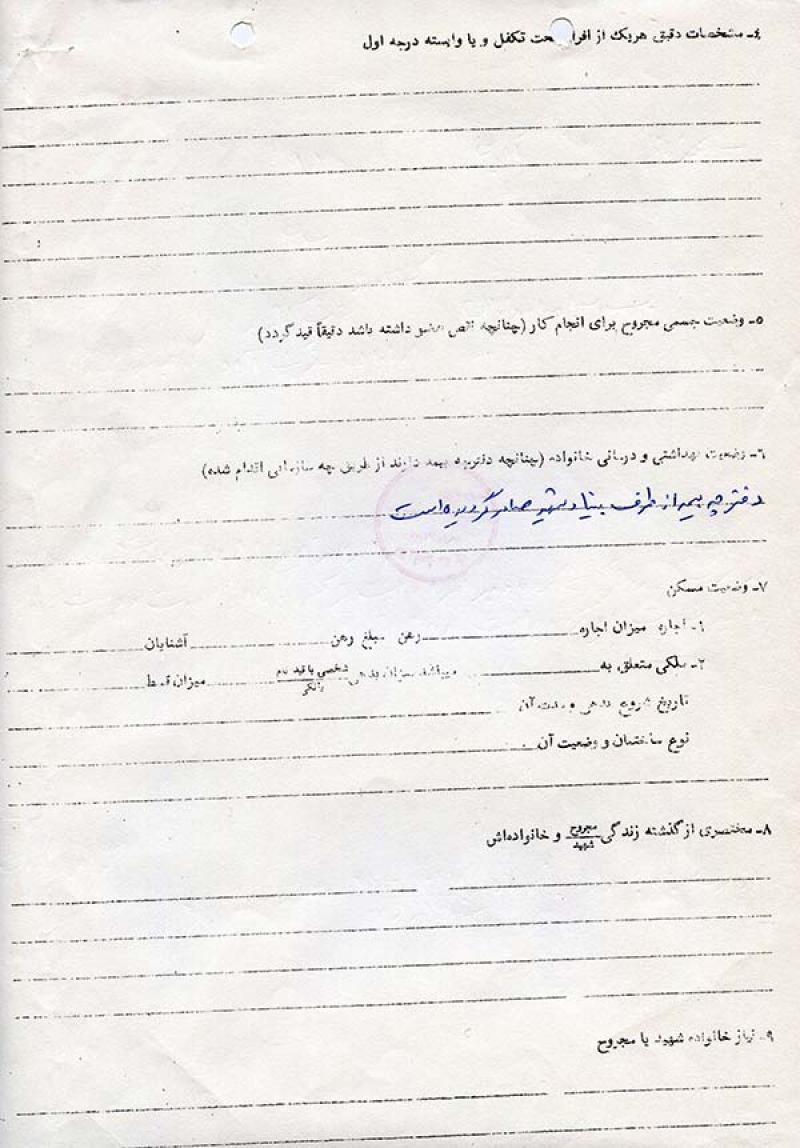 ٤ـ مشخصات دقیق هریک از افراد تحت تکفل و یا وابسته درجه اول
٥ـ وضعیت جسمی مجروح برای انجام کار (چنانچه نقص عضو داشته باشد دقیقاً قید گردد)
٦ـ وضعیت بهداشتی و درمانی خانواده (چنانچه دفترچه بیمه دارند از طریق چه سازمانی اقدام شده)
دفترچه بیمه از طرف بنیاد شهید صادر گردیده است
٧ـ وضعیت مسکن
١ـ اجاره میزان اجاره رهن مبلغ رهن آشنایان
٢ـ ملکی متعلق به میباشد میزان بدهی شخصی با قید نام / بانکی میزان قسط
تاریخ شروع بدهی و مدت آن
نوع ساختمان و وضعیت آن
٨ـ مختصری از گذشته زندگی مجروح / شهید و خانواده‌اش
٩ـ نیاز خانواده شهید یا مجروح